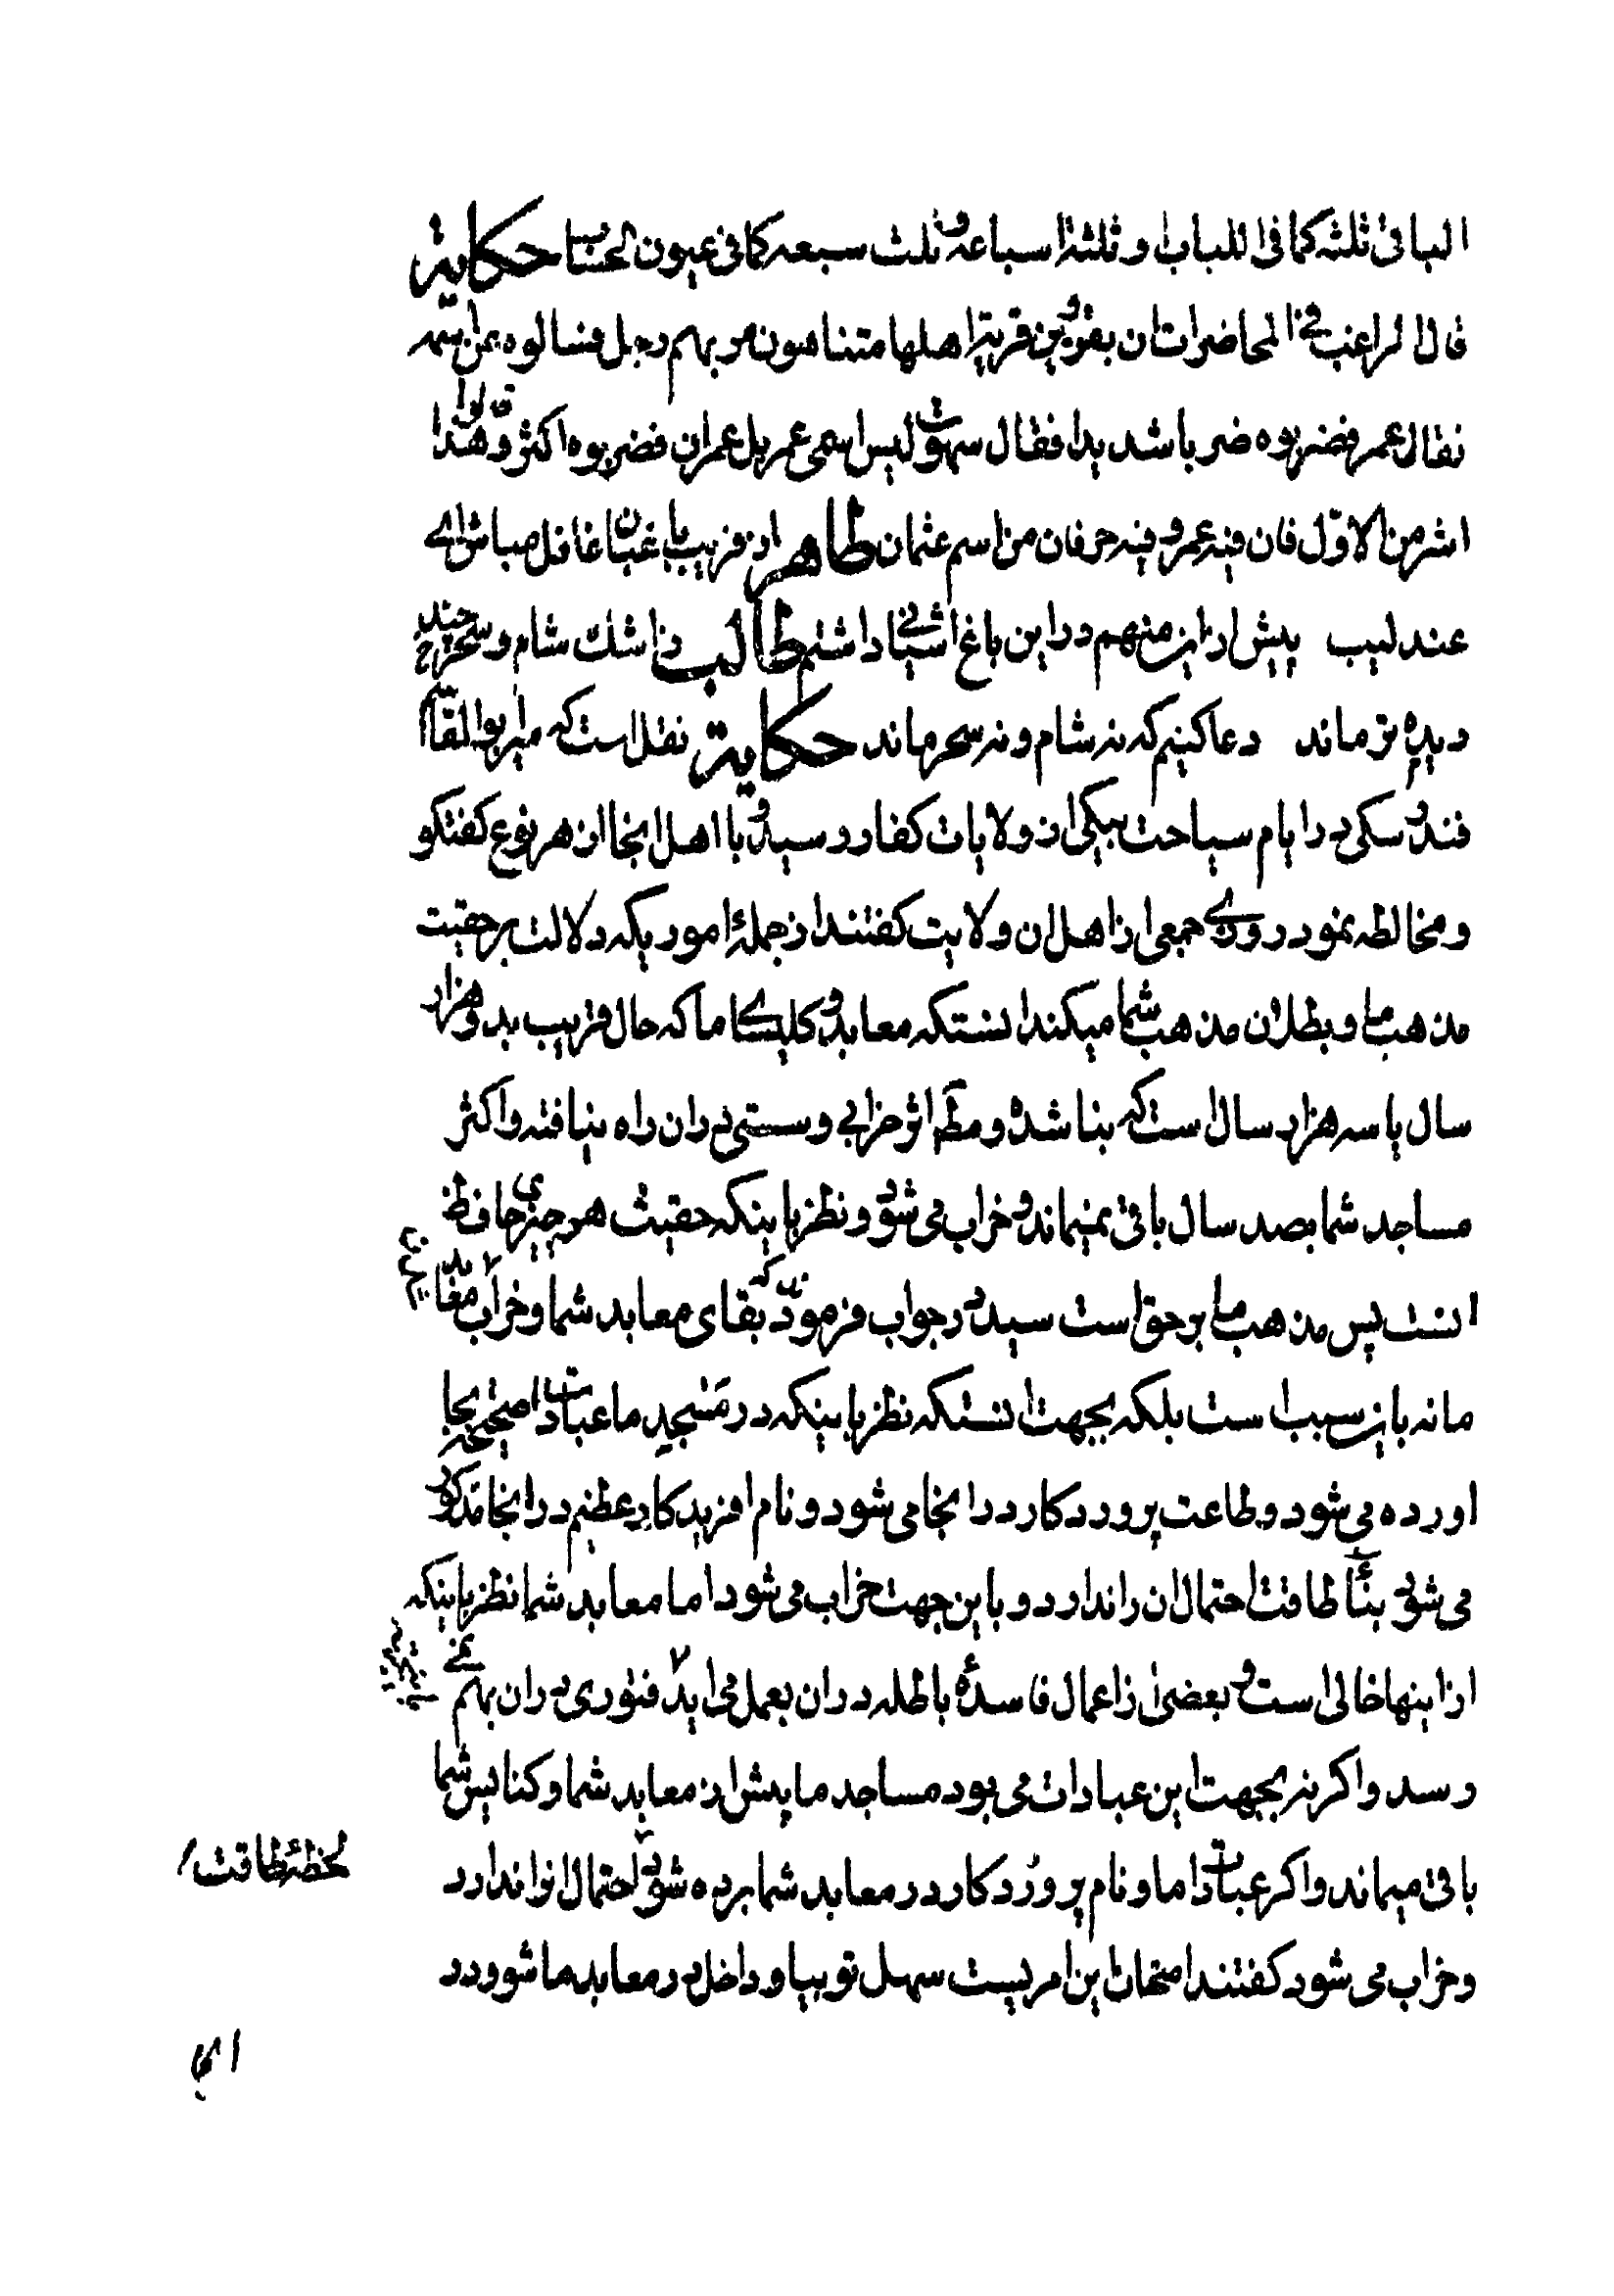 الباقی ثلثه کما فی اللباب و ثلثة اسباعه و ثلث سبعه کما فی عیون الحساب حکایة
قال الراغب فی المحاضرات ان بقزوین قریة اهلها متناهون مر بهم رجل فسالوه عن اسمه
فقال عمر فضربوه ضربا شدیدا فقال سهوت لیس اسمی عمر بل عمران فضربوه اکثر و قالوا هذا
اشر من الاول فان فیه عمر و فیه حرفان من اسم عثمان طاهر از فریب باغبان غافل مباش ای
عندلیب پیش از این منهم در این باغ اشیانی داشتم طالب ز اشک شام و سحر چند
دیدهٔ تر ماند دعا کنیم که نه شام و نه سحر ماند حکایة نقل است که میر ابو القاسم
فندرسکی در ایام سیاحت بیکی از ولایات کفار رسید و با اهل انجا از هر نوع گفتگو
و مخالطه نمود روزی جمعی از اهل ان ولایت گفتند از جملهٔ اموریکه دلالت بر حقیت
مذهب ما و بطلان مذهب شما میکند انستکه معابد و کلیسای ما که حال قریب بدو هزار
سال یا سه هزار سال است که بنا شده و مطلقا اثر خرابی و سستی در ان راه نیافته و اکثر
مساجد شما بصد سال باقی نمیماند و خراب می شود و نظر باینکه حقیت هر چیزی حافظ
انست پس مذهب ما بر حق است سید در جواب فرمودند که بقای معابد شما و خرابی معابد
ما نه باین سبب است بلکه بجهت انستکه نظر باینکه در مسجد ما عبادات صحیحه بجا
اورده می شود و طاعت پروردکار در انجا می شود و نام افریدکار عظیم در انجا مذکور
می شود بنا طاقت احتمال ان را ندارد و باین جهت خراب می شود اما معابد شما نظر باینکه
از اینها خالی است و بعضی از اعمال فاسدهٔ باطله در ان بعمل می اید فتوری در ان بهم نمی
رسد و اکر نه بجهت این عبادات می بود مساجد ما پیش از معابد شما و کنایس شما
باقی میماند و اکر عبادات ما و نام پروردکار در معابد شما برده شود احتمال انرا ندارد
لحظهٔ طاقت
و خراب می شود کفتند امتحان این امریست سهل تو بیا و داخل در معابد ما شو و در
انجا